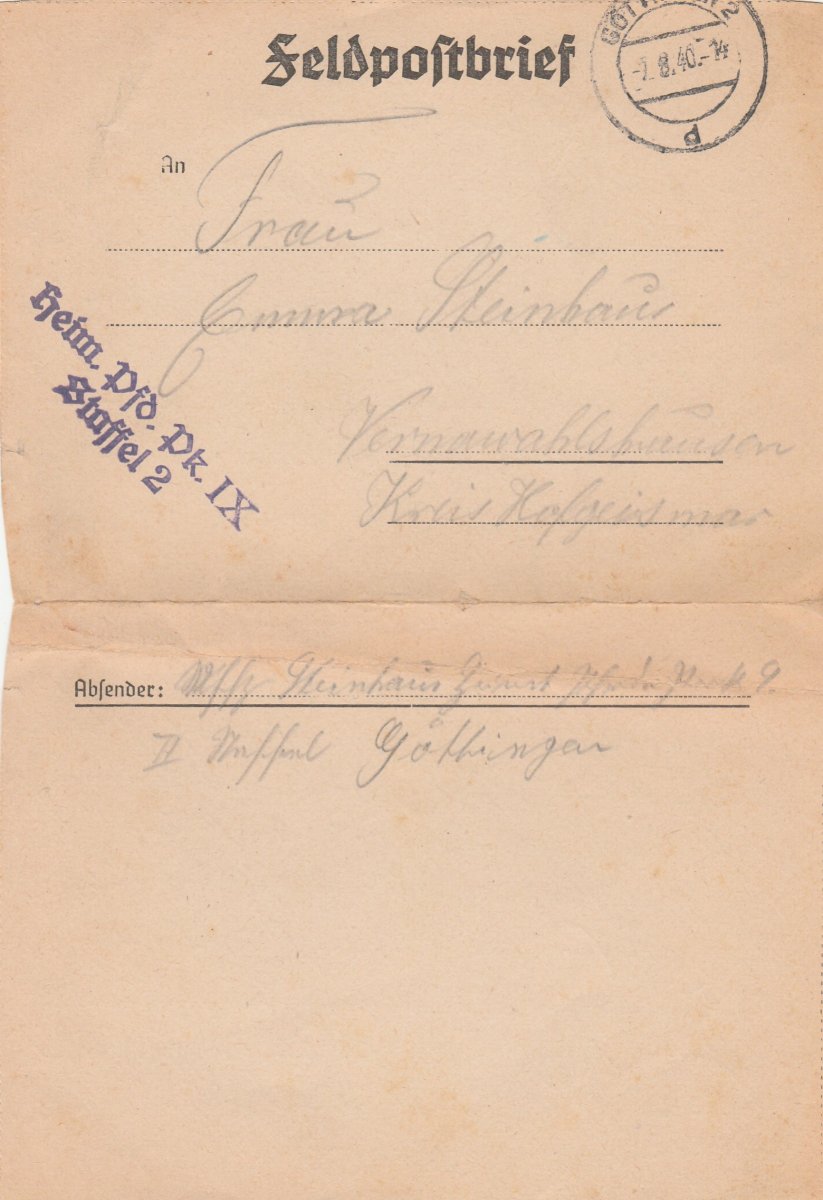 Feldpostbrief
GÖTTINGEN 2
-7.8.40.-14
d
An
Frau
Emma Steinhaus
Vernawahlshausen
Kreis Hofgeismar
Heim. Pfd. Pk. IX
Staffel 2
Absender: Uffz Steinhaus 9.
II Staffel Göttingen